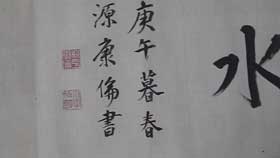 水
庚午暮春
源康倫書